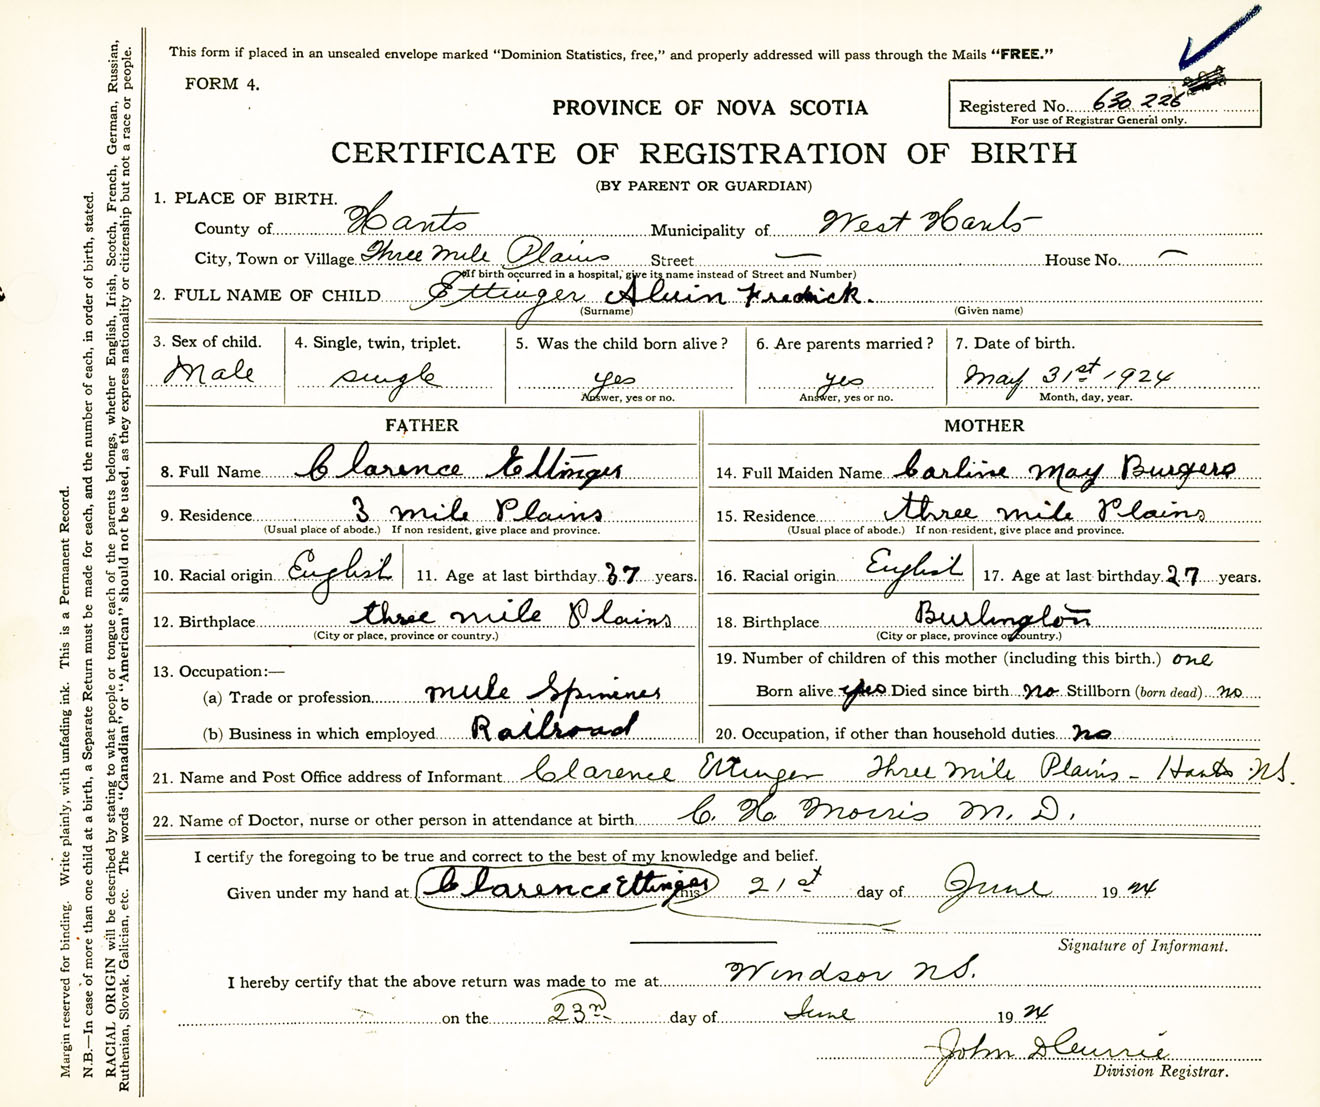 This form if placed in an unsealed envelope marked "Dominion Statistics, free," and properly addressed will pass through the Mails "FREE."
FORM 4.
Registered No. 630 226
For use of Registrar General only.
PROVINCE OF NOVA SCOTIA
CERTIFICATE OF REGISTRATION OF BIRTH
(BY PARENT OR GUARDIAN)
1. PLACE OF BIRTH.
County of Hants Municipality of West Hants
City, Town or Village Three Mile Plains Street — House No. —
(If birth occurred in a hospital, give its name instead of Street and Number)
2. FULL NAME OF CHILD Ettinger Alvin Fredrick.
(Surname) (Given name)
3. Sex of child. 4. Single, twin, triplet. 5. Was the child born alive? 6. Are parents married? 7. Date of birth.
Male single yes yes May 31st 1924
Answer, yes or no. Answer, yes or no. Month, day, year.
FATHER MOTHER
8. Full Name Clarence Ettinger 14. Full Maiden Name Carline May Burgers
9. Residence 3 mile Plains 15. Residence three mile Plains
(Usual place of abode.) If non resident, give place and province. (Usual place of abode.) If non-resident, give place and province.
10. Racial origin English 11. Age at last birthday 37 years. 16. Racial origin English 17. Age at last birthday 27 years.
12. Birthplace three mile Plains 18. Birthplace Burlington
(City or place, province or country.) (City or place, province or country.)
13. Occupation:— 19. Number of children of this mother (including this birth.) one
(a) Trade or profession mule Spinner Born alive yes Died since birth no Stillborn (born dead) no
(b) Business in which employed Railroad 20. Occupation, if other than household duties no
21. Name and Post Office address of Informant Clarence Ettinger Three Mile Plains - Hants N.S.
22. Name of Doctor, nurse or other person in attendance at birth C. H. Morris M. D.
I certify the foregoing to be true and correct to the best of my knowledge and belief.
Given under my hand at Clarence Ettinger this 21st day of June 1924
Signature of Informant.
I hereby certify that the above return was made to me at Windsor N.S.
on the 23rd day of June 1924
John D Currie
Division Registrar.
Margin reserved for binding. Write plainly, with unfading ink. This is a Permanent Record.
N.B.—In case of more than one child at a birth, a Separate Return must be made for each, and the number of each, in order of birth, stated.
RACIAL ORIGIN will be described by stating to what people or tongue each of the parents belongs, whether English, Irish, Scotch, French, German, Russian,
Ruthenian, Slovak, Galician, etc. The words "Canadian" or "American" should not be used, as they express nationality or citizenship but not a race or people.